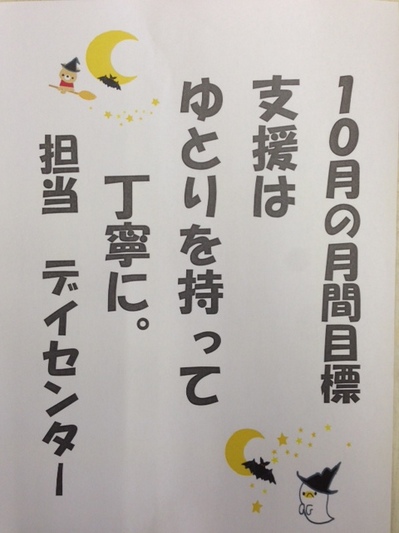 10月の月間目標
支援は
ゆとりを持って
丁寧に。
担当　デイセンター